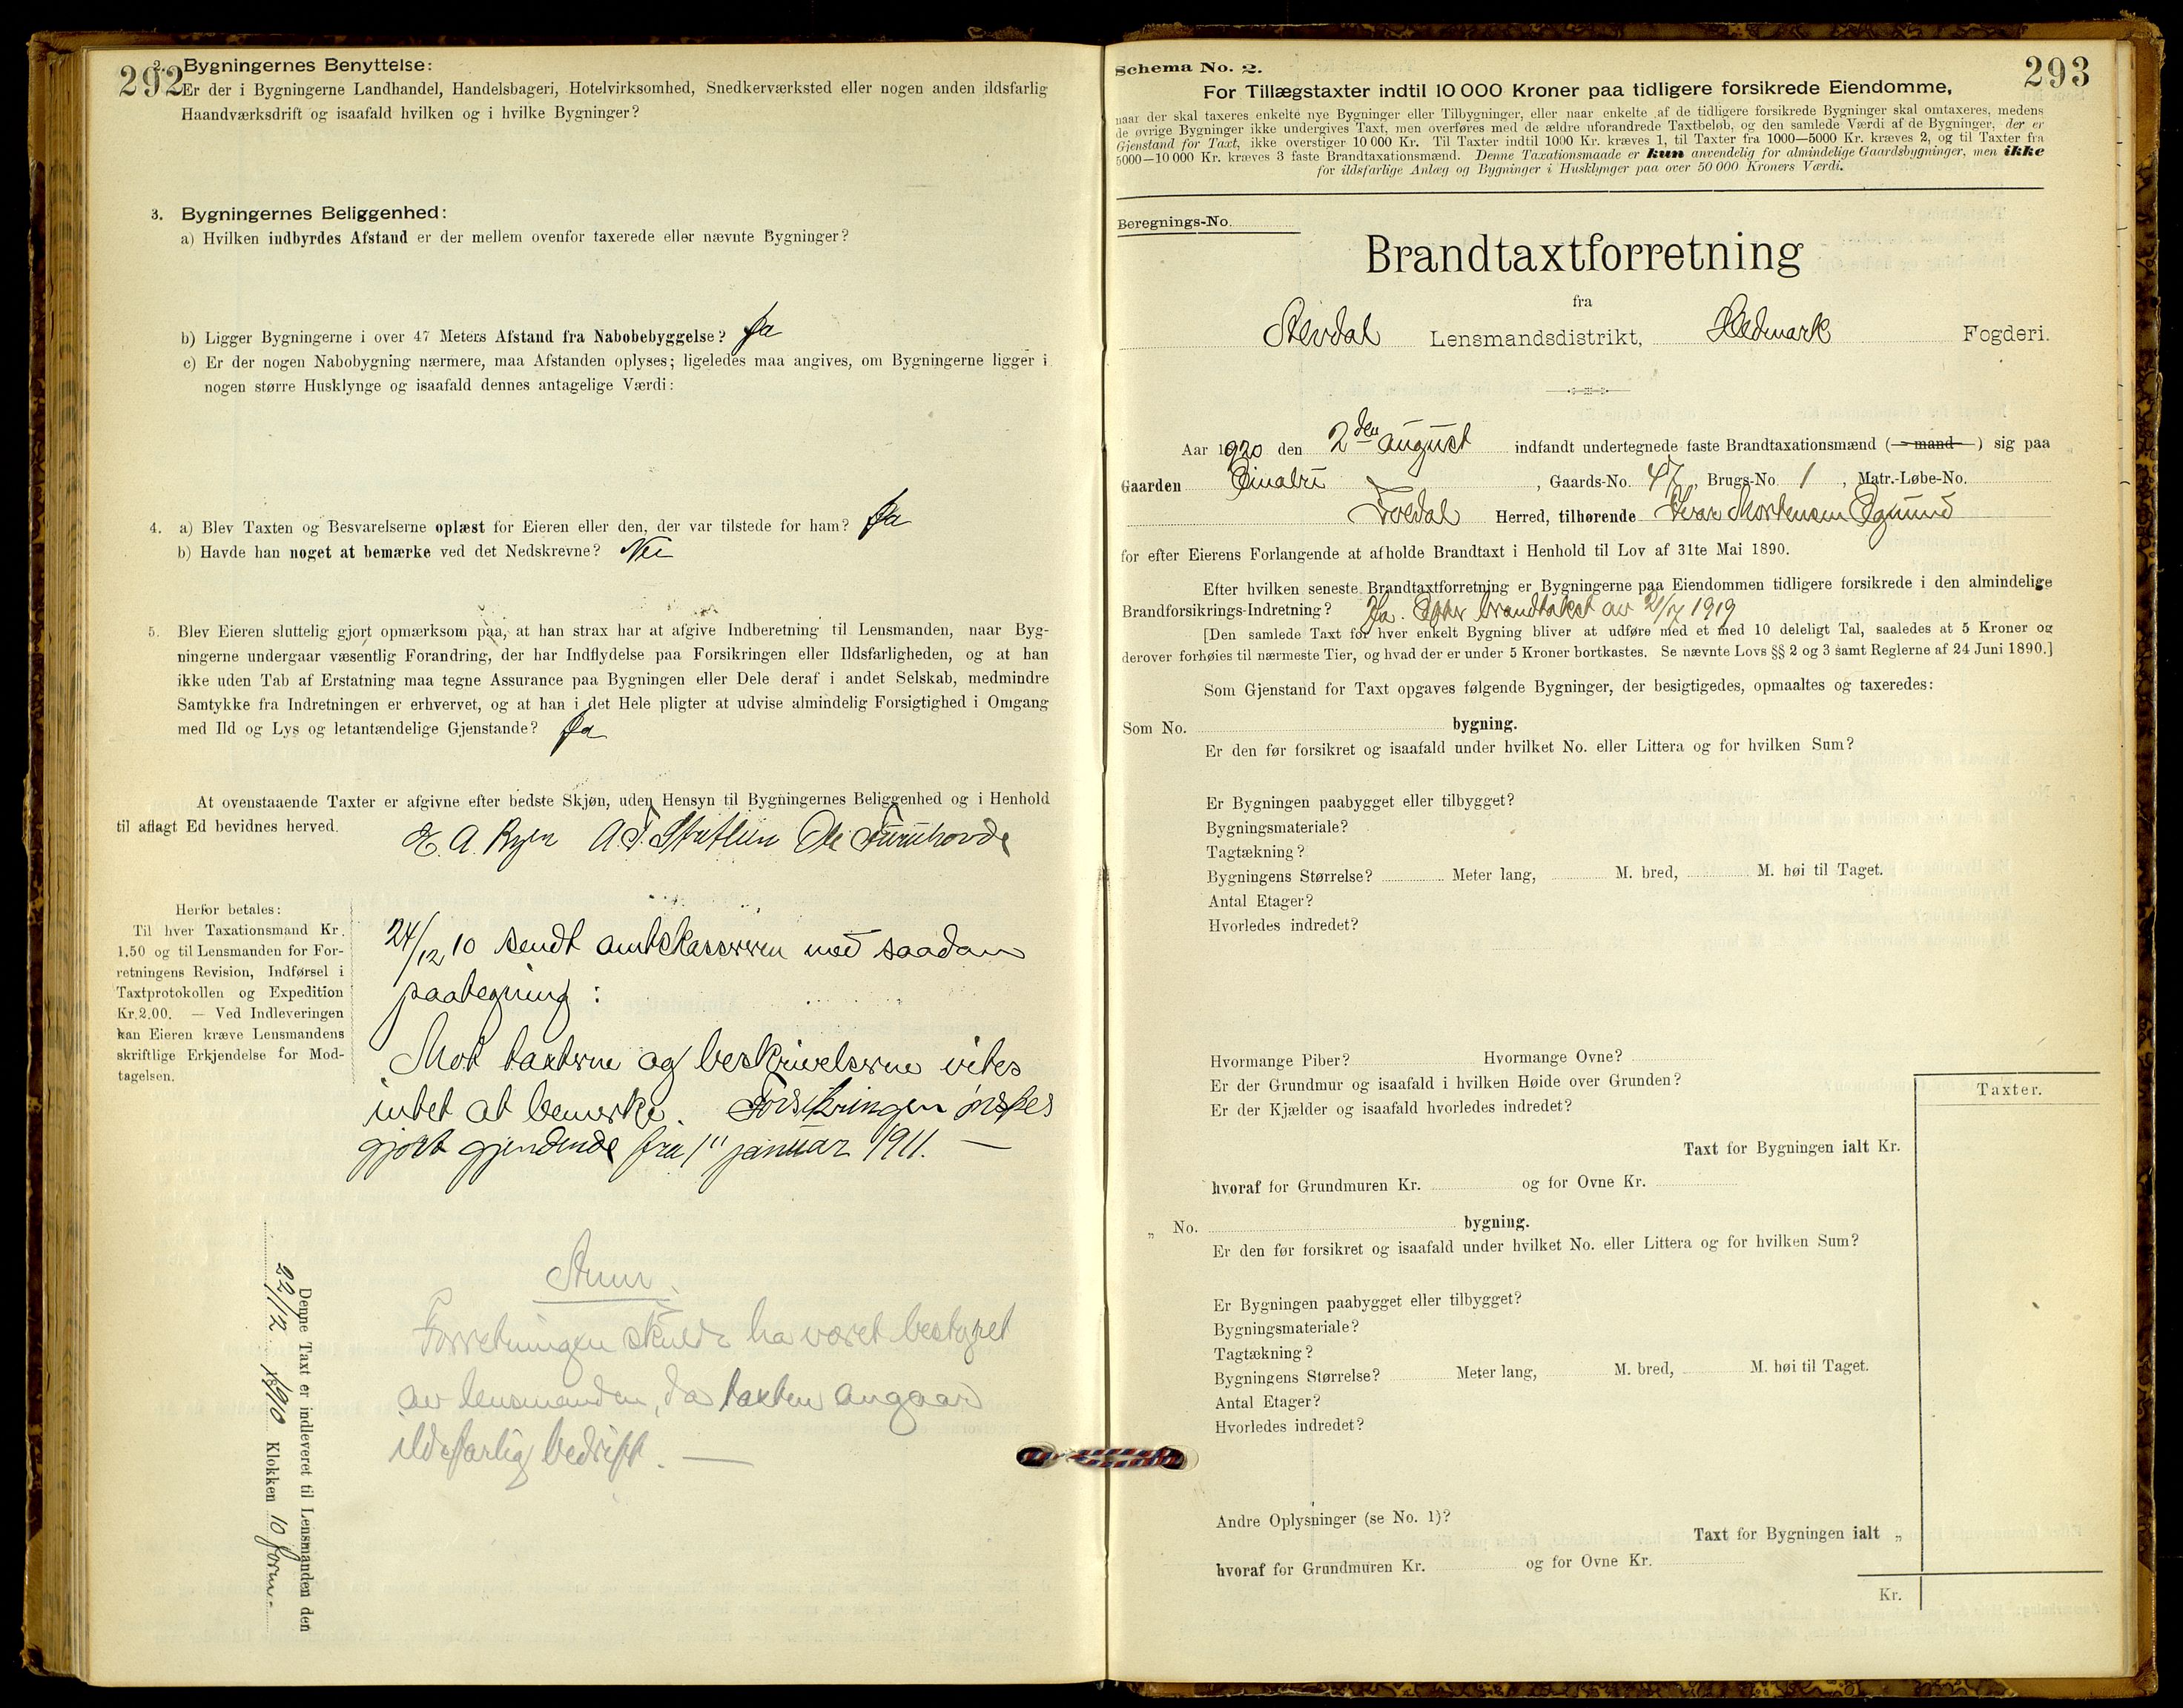 292
2. Bygningernes Benyttelse:
Er der i Bygningerne Landhandel, Handelsbageri, Hotelvirksomhed, Snedkerværksted eller nogen anden ildsfarlig
Haandværksdrift og isaafald hvilken og i hvilke Bygninger?
3. Bygningernes Beliggenhed:
a) Hvilken indbyrdes Afstand er der mellem ovenfor taxerede eller nævnte Bygninger?
b) Ligger Bygningerne i over 47 Meters Afstand fra Nabobebyggelse? Ja
c) Er der nogen Nabobygning nærmere, maa Afstanden oplyses; ligeledes maa angives, om Bygningerne ligger i
nogen større Husklynge og isaafald dennes antagelige Værdi:
4. a) Blev Taxten og Besvarelserne oplæst for Eieren eller den, der var tilstede for ham? Ja
b) Havde han noget at bemærke ved det Nedskrevne? Nei
5. Blev Eieren sluttelig gjort opmærksom paa, at han strax har at afgive Indberetning til Lensmanden, naar Byg-
ningerne undergaar væsentlig Forandring, der har Indflydelse paa Forsikringen eller Ildsfarligheden, og at han
ikke uden Tab af Erstatning maa tegne Assurance paa Bygningen eller Dele deraf i andet Selskab, medmindre
Samtykke fra Indretningen er erhvervet, og at han i det Hele pligter at udvise almindelig Forsigtighed i Omgang
med Ild og Lys og letantændelige Gjenstande? Ja
At ovenstaaende Taxter er afgivne efter bedste Skjøn, uden Hensyn til Bygningernes Beliggenhed og i Henhold
til aflagt Ed bevidnes herved.
A. Ryen A. T. Ole Furuhovde
Herfor betales:
Til hver Taxationsmand Kr.
1.50 og til Lensmanden for For-
retningens Revision, Indførsel i
Taxtprotokollen og Expedition
Kr. 2.00. — Ved Indleveringen
kan Eieren kræve Lensmandens
skriftlige Erkjendelse for Mod-
tagelsen.
24/12 10 sendt amtskassereren med saadan
paategning:
Mot taxterne og beskrivelserne vites
intet at bemerke. Forsikringen ønskes
gjort gjeldende fra 1" januar 1911. —
Anm.
Forretningen skulde ha været bestyret
av lensmanden, da taxten angaar
ildsfarlig bedrift. —
Denne Taxt er indleveret til Lensmanden den
22/12 1910 Klokken 10 form.
293
Schema No. 2.
For Tillægstaxter indtil 10 000 Kroner paa tidligere forsikrede Eiendomme,
naar der skal taxeres enkelte nye Bygninger eller Tilbygninger, eller naar enkelte af de tidligere forsikrede Bygninger skal omtaxeres, medens
de øvrige Bygninger ikke undergives Taxt, men overføres med de ældre uforandrede Taxtbeløb, og den samlede Værdi af de Bygninger, der er
Gjenstand for Taxt, ikke overstiger 10 000 Kr. Til Taxter indtil 1000 Kr. kræves 1, til Taxter fra 1000—5000 Kr. kræves 2, og til Taxter fra
5000—10 000 Kr. kræves 3 faste Brandtaxationsmænd. Denne Taxationsmaade er kun anvendelig for almindelige Gaardsbygninger, men ikke
for ildsfarlige Anlæg og Bygninger i Husklynger paa over 50 000 Kroners Værdi.
Beregnings-No.
Brandtaxtforretning
fra
Alvdal Lensmandsdistrikt, Hedmark Fogderi.
Aar 1920 den 2den august indfandt undertegnede faste Brandtaxationsmænd (- mand -) sig paa
Gaarden Einabu, Gaards-No. 47, Brugs-No. 1, Matr.-Løbe-No.
Foldal Herred, tilhørende Ivar Mortensen Egnund
for efter Eierens Forlangende at afholde Brandtaxt i Henhold til Lov af 31te Mai 1890.
Efter hvilken seneste Brandtaxtforretning er Bygningerne paa Eiendommen tidligere forsikrede i den almindelige
Brandforsikrings-Indretning? Ja. Efter brandtakst av 21/7 1919
[Den samlede Taxt for hver enkelt Bygning bliver at udføre med et med 10 deleligt Tal, saaledes at 5 Kroner og
derover forhøies til nærmeste Tier, og hvad der er under 5 Kroner bortkastes. Se nævnte Lovs §§ 2 og 3 samt Reglerne af 24 Juni 1890.]
Som Gjenstand for Taxt opgaves følgende Bygninger, der besigtigedes, opmaaltes og taxeredes:
Som No. bygning.
Er den før forsikret og isaafald under hvilket No. eller Littera og for hvilken Sum?
Er Bygningen paabygget eller tilbygget?
Bygningsmateriale?
Tagtækning?
Bygningens Størrelse? Meter lang, M. bred, M. høi til Taget.
Antal Etager?
Hvorledes indredet?
Hvormange Piber? Hvormange Ovne?
Er der Grundmur og isaafald i hvilken Høide over Grunden?
Er der Kjælder og isaafald hvorledes indredet?
Taxter.
Taxt for Bygningen ialt Kr.
hvoraf for Grundmuren Kr. og for Ovne Kr.
„ No. bygning.
Er den før forsikret og isaafald under hvilket No. eller Littera og for hvilken Sum?
Er Bygningen paabygget eller tilbygget?
Bygningsmateriale?
Tagtækning?
Bygningens Størrelse? Meter lang, M. bred, M. høi til Taget.
Antal Etager?
Hvorledes indredet?
Andre Oplysninger (se No. 1)?
Taxt for Bygningen ialt „
hvoraf for Grundmuren Kr. og for Ovne Kr.
Kr.